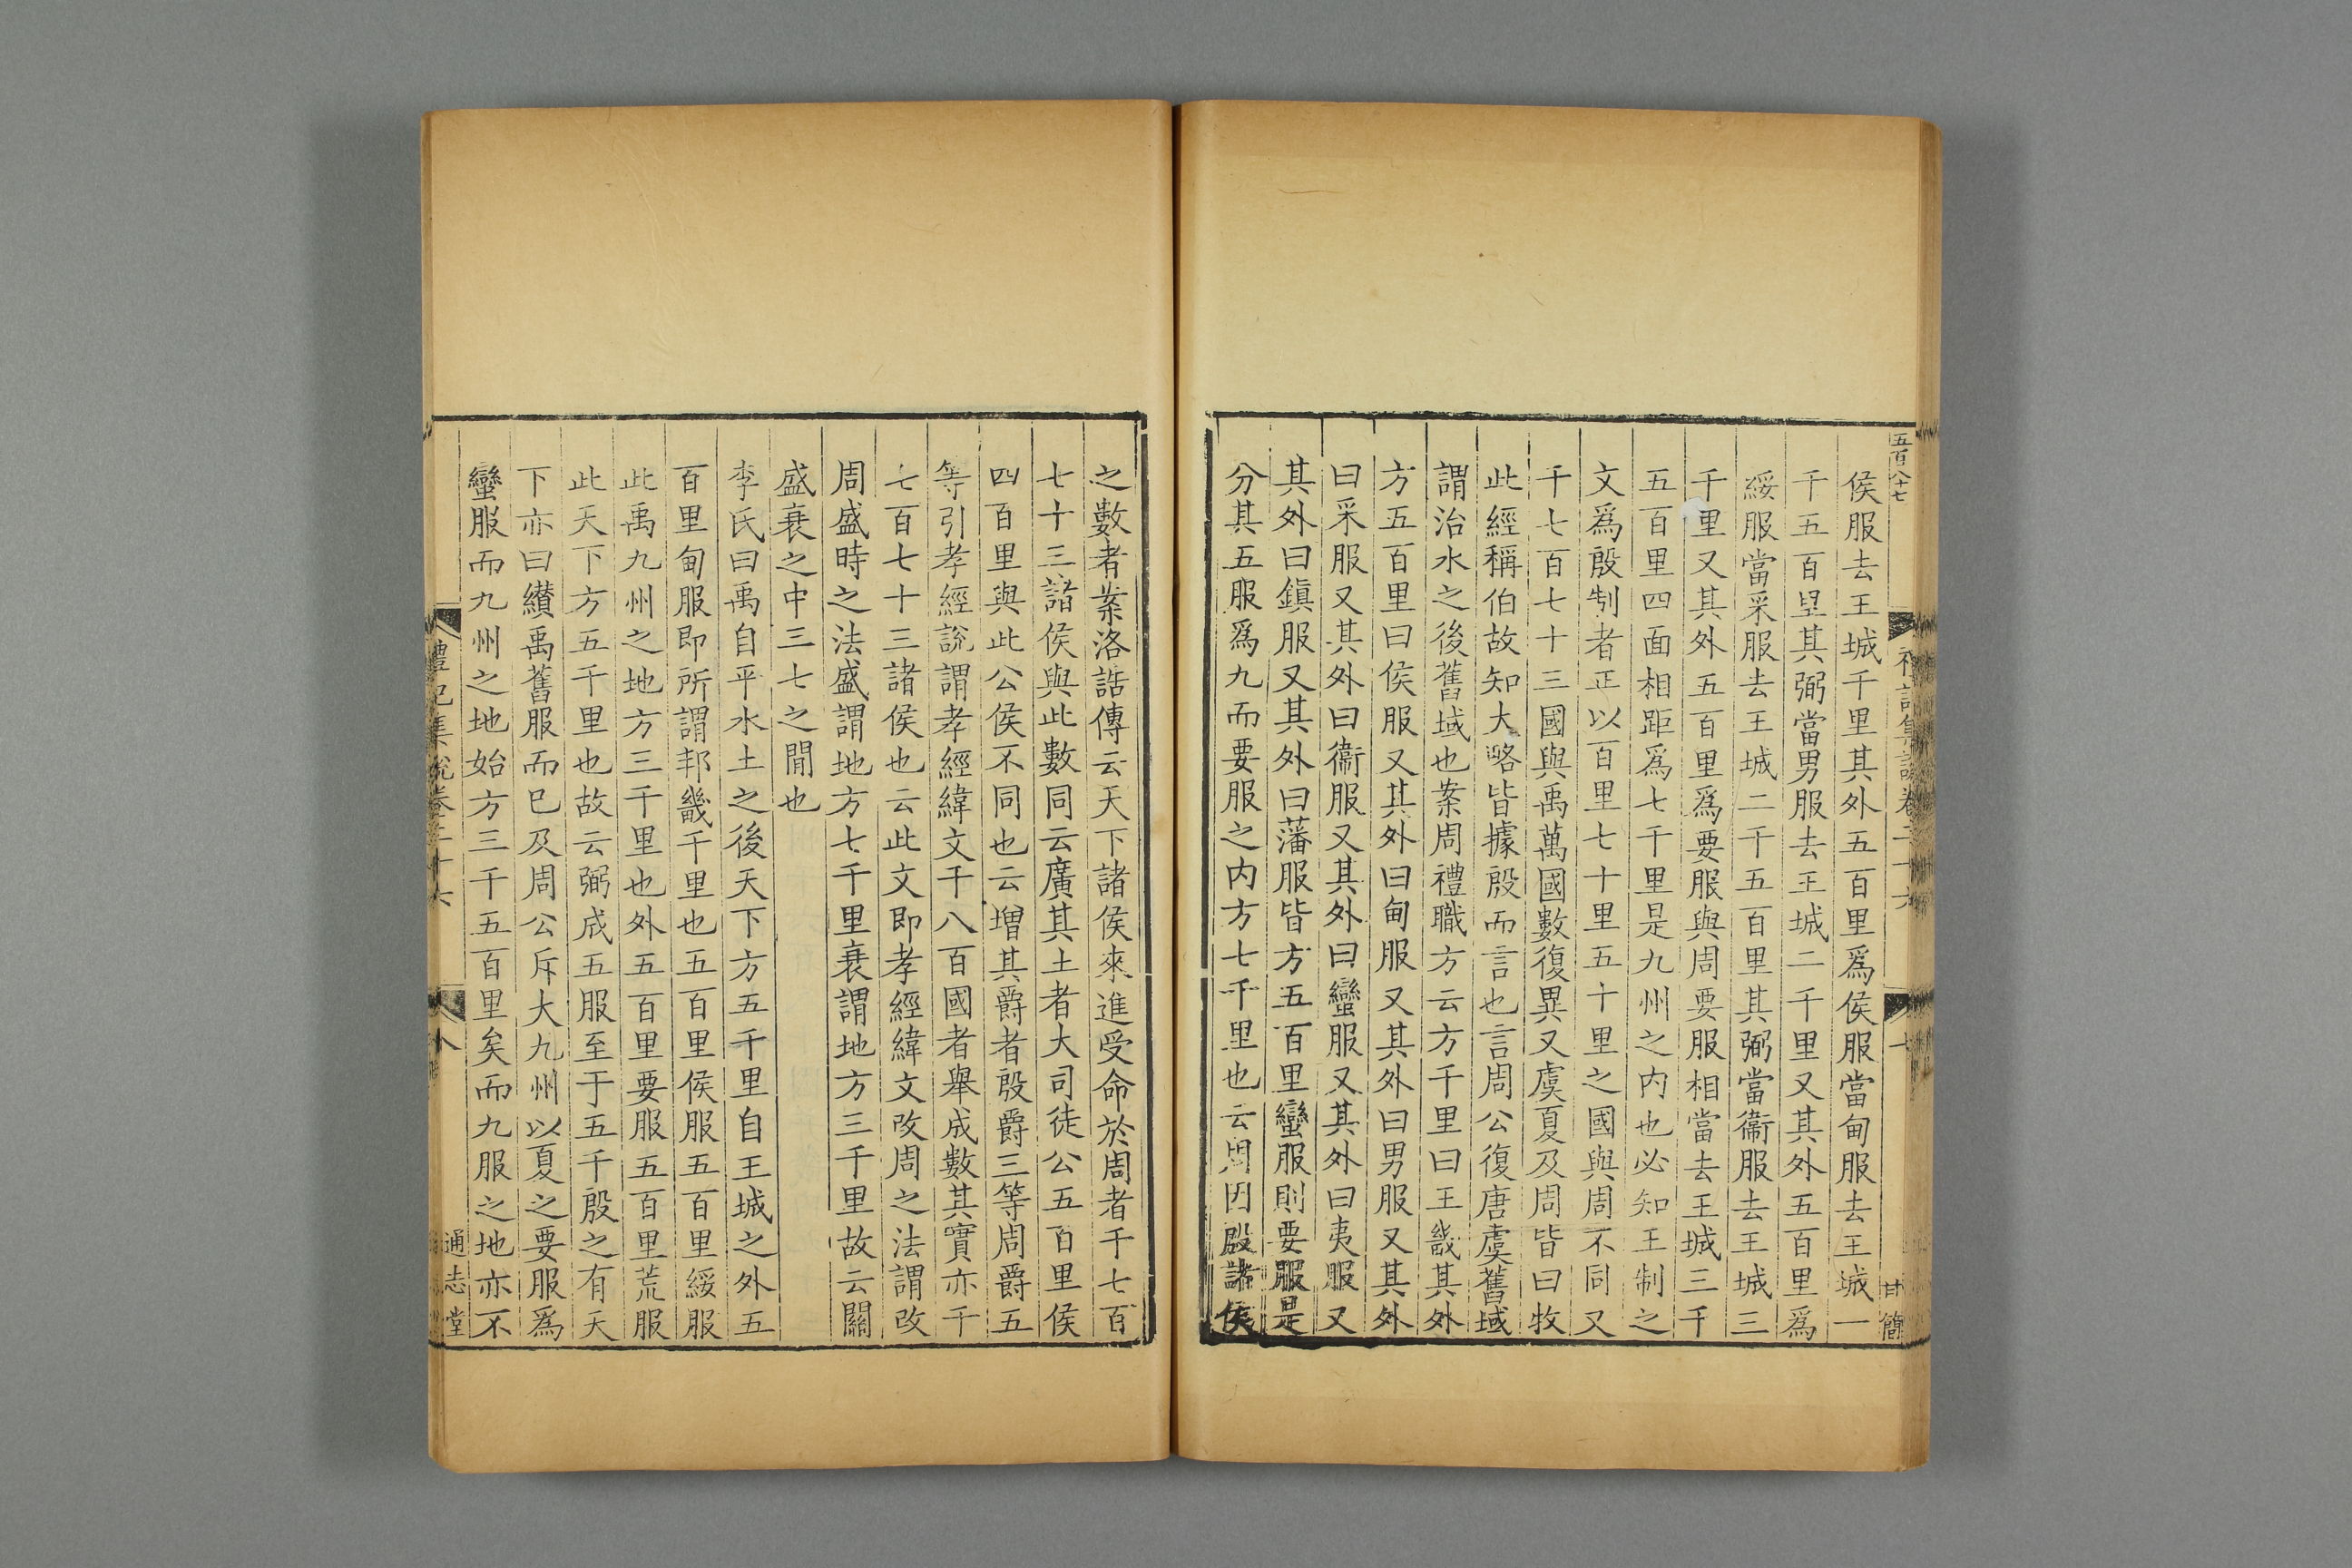 五百八十七
禮記集說卷二十六
七
甘簡
侯服去王城千里其外五百里爲侯服當甸服去王城一
千五百里其弼當男服去王城二千里又其外五百里爲
綏服當采服去王城二千五百里其弼當衞服去王城三
千里又其外五百里爲要服與周要服相當去王城三千
五百里四面相距爲七千里是九州之內也必知王制之
文爲殷制者正以百里七十里五十里之國與周不同又
千七百七十三國與禹萬國數復異又虞夏及周皆曰牧
此經稱伯故知大略皆據殷而言也言周公復唐虞舊域
謂治水之後舊域也案周禮職方云方千里曰王畿其外
方五百里曰侯服又其外曰甸服又其外曰男服又其外
曰采服又其外曰衞服又其外曰蠻服又其外曰夷服又
其外曰鎭服又其外曰藩服皆方五百里蠻服則要服是
分其五服爲九而要服之内方七千里也云周因殷諸侯
之數者案洛誥傳云天下諸侯來進受命於周者千七百
七十三諸侯與此數同云廣其土者大司徒公五百里侯
四百里與此公侯不同也云增其爵者殷爵三等周爵五
等引孝經說謂孝經緯文千八百國者舉成數其實亦千
七百七十三諸侯也云此文即孝經緯文改周之法謂改
周盛時之法盛謂地方七千里衰謂地方三千里故云關
盛衰之中三七之閒也
李氏曰禹自平水土之後天下方五千里自王城之外五
百里甸服即所謂邦畿千里也五百里侯服五百里綏服
此禹九州之地方三千里也外五百里要服五百里荒服
此天下方五千里也故云弼成五服至于五千殷之有天
下亦曰纘禹舊服而已及周公斥大九州以夏之要服爲
蠻服而九州之地始方三千五百里矣而九服之地亦不
禮記集說卷二十六
八
通志堂